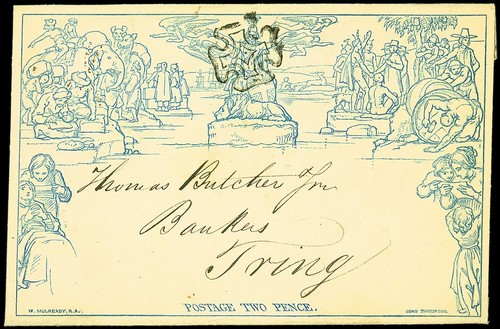 Thomas Butcher Jnr
Bankers
Tring
POSTAGE TWO PENCE.
W. MULREADY, R.A.
JOHN THOMPSON